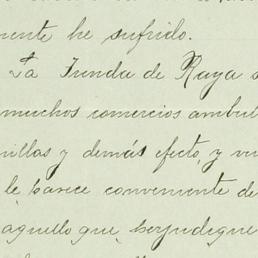 mente he sufrido.
La Tienda de Raya s
muchos comercios ambul
illas y demás efecto, y v
le parece conveniente de
aquello que perjudique